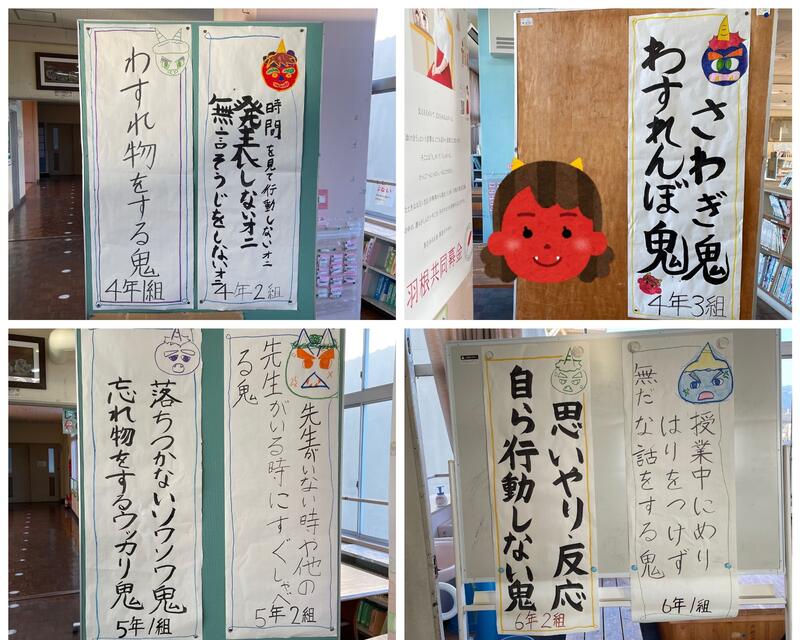 わすれ物をする鬼
4年1組
時間を見て行動しないオニ
発表しないオニ
無言そうじをしないオニ
4年2組
羽根共同募金
さわぎ鬼
わすれんぼ鬼
4年3組
落ちつかないソワソワ鬼
忘れ物をするウッカリ鬼
5年1組
先生がいない時や他の
先生がいる時にすぐしゃべ
る鬼
5年2組
思いやり、反応
自ら行動しない鬼
6年2組
授業中にめり
はりをつけず
無だな話をする鬼
6年1組